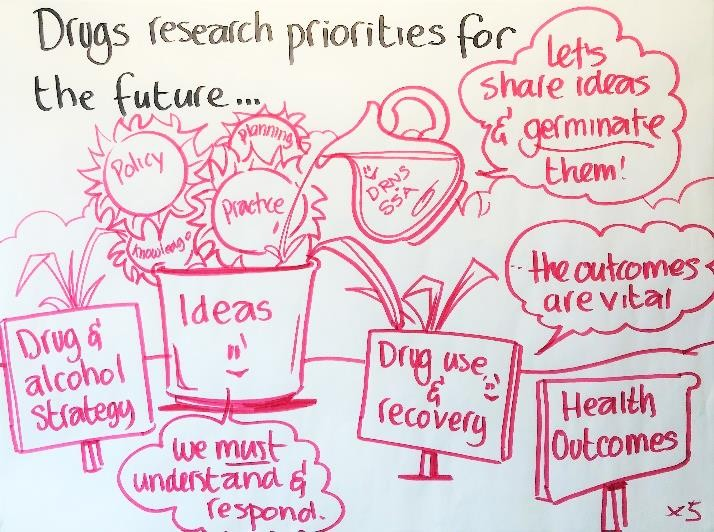 Drugs research priorities for
the future...
Let's
share ideas
& germinate
them!
Policy
planning
Practice
knowledge
DRNS
SSA
the outcomes
are vital
Ideas
Drug &
alcohol
strategy
Drug use
&
recovery
Health
Outcomes
we must
understand &
respond.
x5